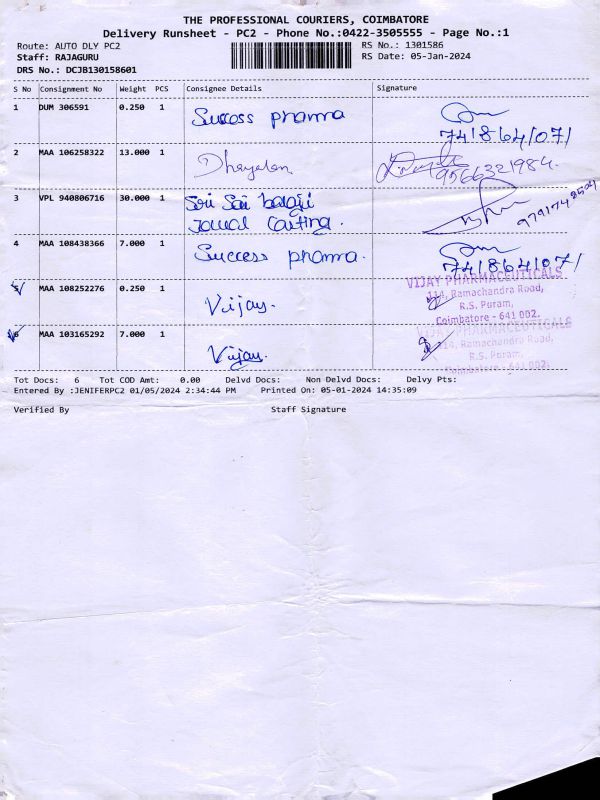 THE PROFESSIONAL COURIERS, COIMBATORE
Delivery Runsheet - PC2 - Phone No.:0422-3505555 - Page No.:1
Route: AUTO DLY PC2
RS No.: 1301586
Staff: RAJAGURU
RS Date: 05-Jan-2024
DRS No.: DCJB130158601
S No Consignment No Weight PCS Consignee Details Signature
1 DUM 306591 0.250 1 Success pharma
7418641071
2 MAA 106258322 13.000 1 Dhayalan
9566321984.
3 VPL 940806716 30.000 1 Sri Sai balaji
Jewel Casting.
4 MAA 108438366 7.000 1 Success pharma.
7418641071
5 MAA 108252276 0.250 1 Vijay.
VIJAY PHARMACEUTICALS
114, Ramachandra Road,
R.S. Puram,
Coimbatore - 641 002.
6 MAA 103165292 7.000 1 Vijay.
VIJAY PHARMACEUTICALS
114, Ramachandra Road,
R.S. Puram,
Coimbatore - 641 002.
Tot Docs: 6 Tot COD Amt: 0.00 Delvd Docs: Non Delvd Docs: Delvy Pts:
Entered By :JENIFERPC2 01/05/2024 2:34:44 PM Printed On: 05-01-2024 14:35:09
Verified By Staff Signature